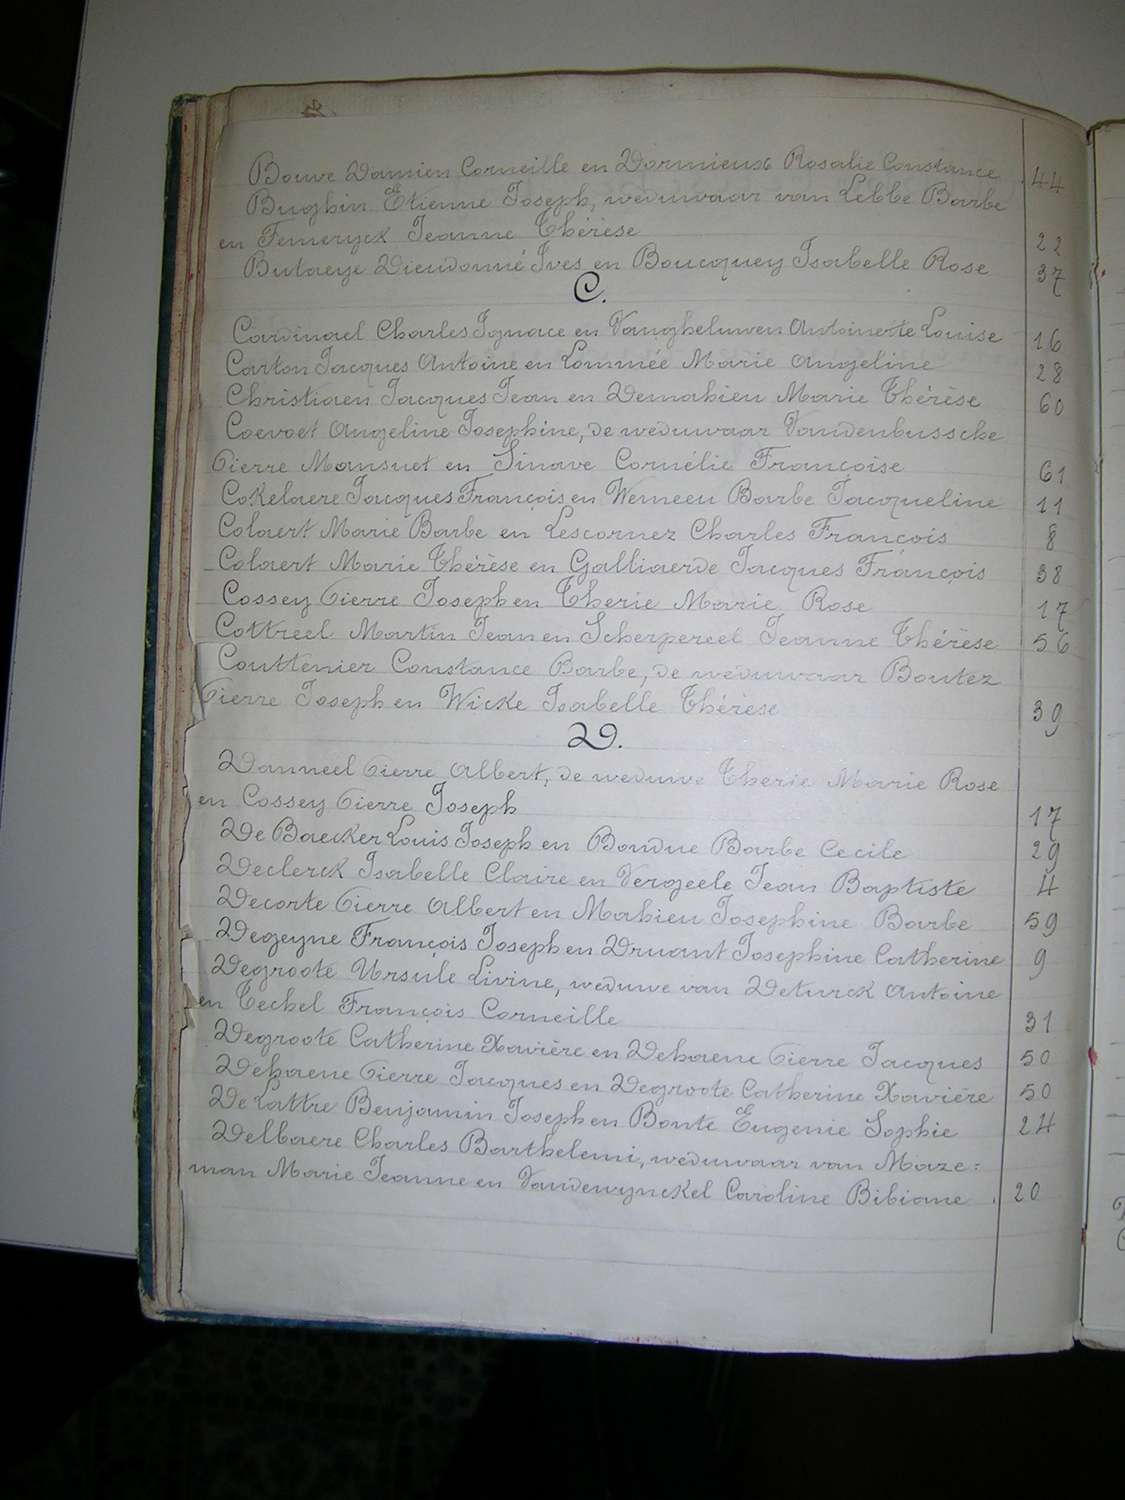 Bouve Damien Corneille en Dormieux Rosalie Constance 44
Bughin Etienne Joseph, weduwaar van Lebbe Barbe
en Femeryck Jeanne Thérèse 22
Butaeye Dieudonné Ives en Boucquey Isabelle Rose 37
C.
Cardinael Charles Ignace en Vangheluwen Antoinette Louise 16
Carton Jacques Antoine en Lommée Marie Angeline 28
Christiaen Jacques Jean en Demahieu Marie Thérèse 60
Coevoet Angeline Josephine, de weduwaar Vandenbussche
Pierre Mansuet en Sinave Cornélie Françoise 61
Cokelaere Jacques François en Wemeeu Barbe Jacqueline 11
Colaert Marie Barbe en Lescornez Charles François 8
Colaert Marie Thérèse en Galliaerde Jacques François 38
Cossey Pierre Joseph en Therie Marie Rose 17
Cottreel Martin Jean en Scherpereel Jeanne Thérèse 56
Couttenier Constance Barbe, de weduwaar Boutez
Pierre Joseph en Wicke Isabelle Thérèse 39
D.
Danneel Pierre Albert, de weduwe Therie Marie Rose
en Cossey Pierre Joseph 17
De Baecker Louis Joseph en Bondue Barbe Cecile 29
Declerck Isabelle Claire en Vergeele Jean Baptiste 4
Decorte Pierre Albert en Mahieu Josephine Barbe 59
Degeyne François Joseph en Druant Josephine Catherine 9
Degroote Ursule Livine, weduwe van Deturck Antoine
en Teckel François Corneille 31
Degroote Catherine Xavière en Dehaene Pierre Jacques 50
Dehaene Pierre Jacques en Degroote Catherine Xavière 50
De Lattre Benjamin Joseph en Bonte Eugenie Sophie 24
Delbaere Charles Barthelemi, weduwaar van Maze=
man Marie Jeanne en Vandewynckel Caroline Bibiane 20